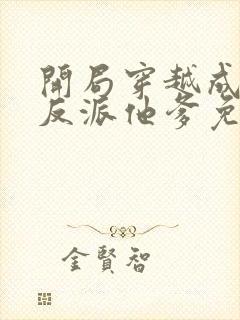 開局穿越成
反派他爹免
金賢智